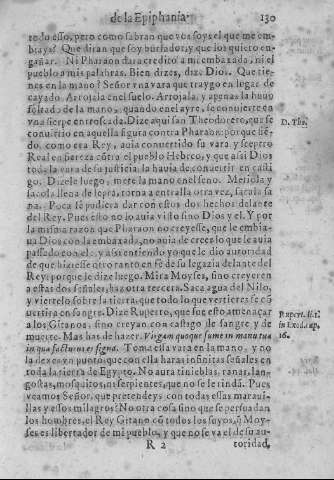 de la Epiphania. 130
todo esso, pero como sabran que vos soys el que me em-
biays? Que diran que soy burlador, y que los quiero en-
gañar. Ni Pharaon dara credito a mi embaxada, ni el
pueblo a mis palabras. Bien dizes, dize Dios. Que tie-
nes en la mano? Señor vna vara que traygo en lugar de
cayado. Arrojala en el suelo. Arrojala, y apenas la huuo
soltado de la mano, quando en el ayre, se conuierte en
vna sierpe enroscada. Dize aqui san Theodoreto, que se
conuirtio en aquella figura contra Pharaon: porque sié-
do, como era Rey, auia conuertido su vara, y sceptro
Real en fiereza côtra el pueblo Hebreo, y que assi Dios
toda la vara de su justicia, la hauia de conuertir en casti
go. Dizele luego, mete la mano en el seno. Metiola, y
sacola llena de lepra, torna a entralla otra vez, sacala sa
na. Pocá sè pudiera dar con estos dos hechos delante
del Rey. Pues esto no lo auia visto sino Dios y el. Y por
la misma razon que Pharaon no creyesse, que le embia-
ua Dios con la embaxada, no auia de creer lo que le auia
passado con el: y assi entiendo yo que le dio autoridad
de que hiziesse otro tanto en fè de su legazia delante del
Rey, porque le dize luego. Mira Moyses, sino creyeren
a estas dos señales, haz otra tercera. Saca agua del Nilo,
y viertelo sobre la tierra, que todo lo que vertieres se cô
uertira en sangre. Dize Ruperto, que fue esto amenaçar
a los Gitanos, sino creyan con castigo de sangre y de
muerte. Mas has de hazer. Virgam quoque sume in manu tua
in qua facturus es signa. Toma essa vara en la mano, y no
la dexes vn punto, que con ella haras infinitas señales en
toda la tierra de Egypto. No aura tinieblas, ranas, lan-
gostas, mosquitos, ni serpientes, que no se le rindã. Pues
veamos Señor, que pretendeys con todas essas maraui-
llas y essos milagros? No otra cosa sino que se persuadan
los hombres, el Rey Gitano cõ todos los suyos, q̃ Moy-
ses es libertador de mi pueblo, y que no se va el de su au-
R 2 toridad,
D. The.
Rupert. li. 1.
in Exod. cap.
16.